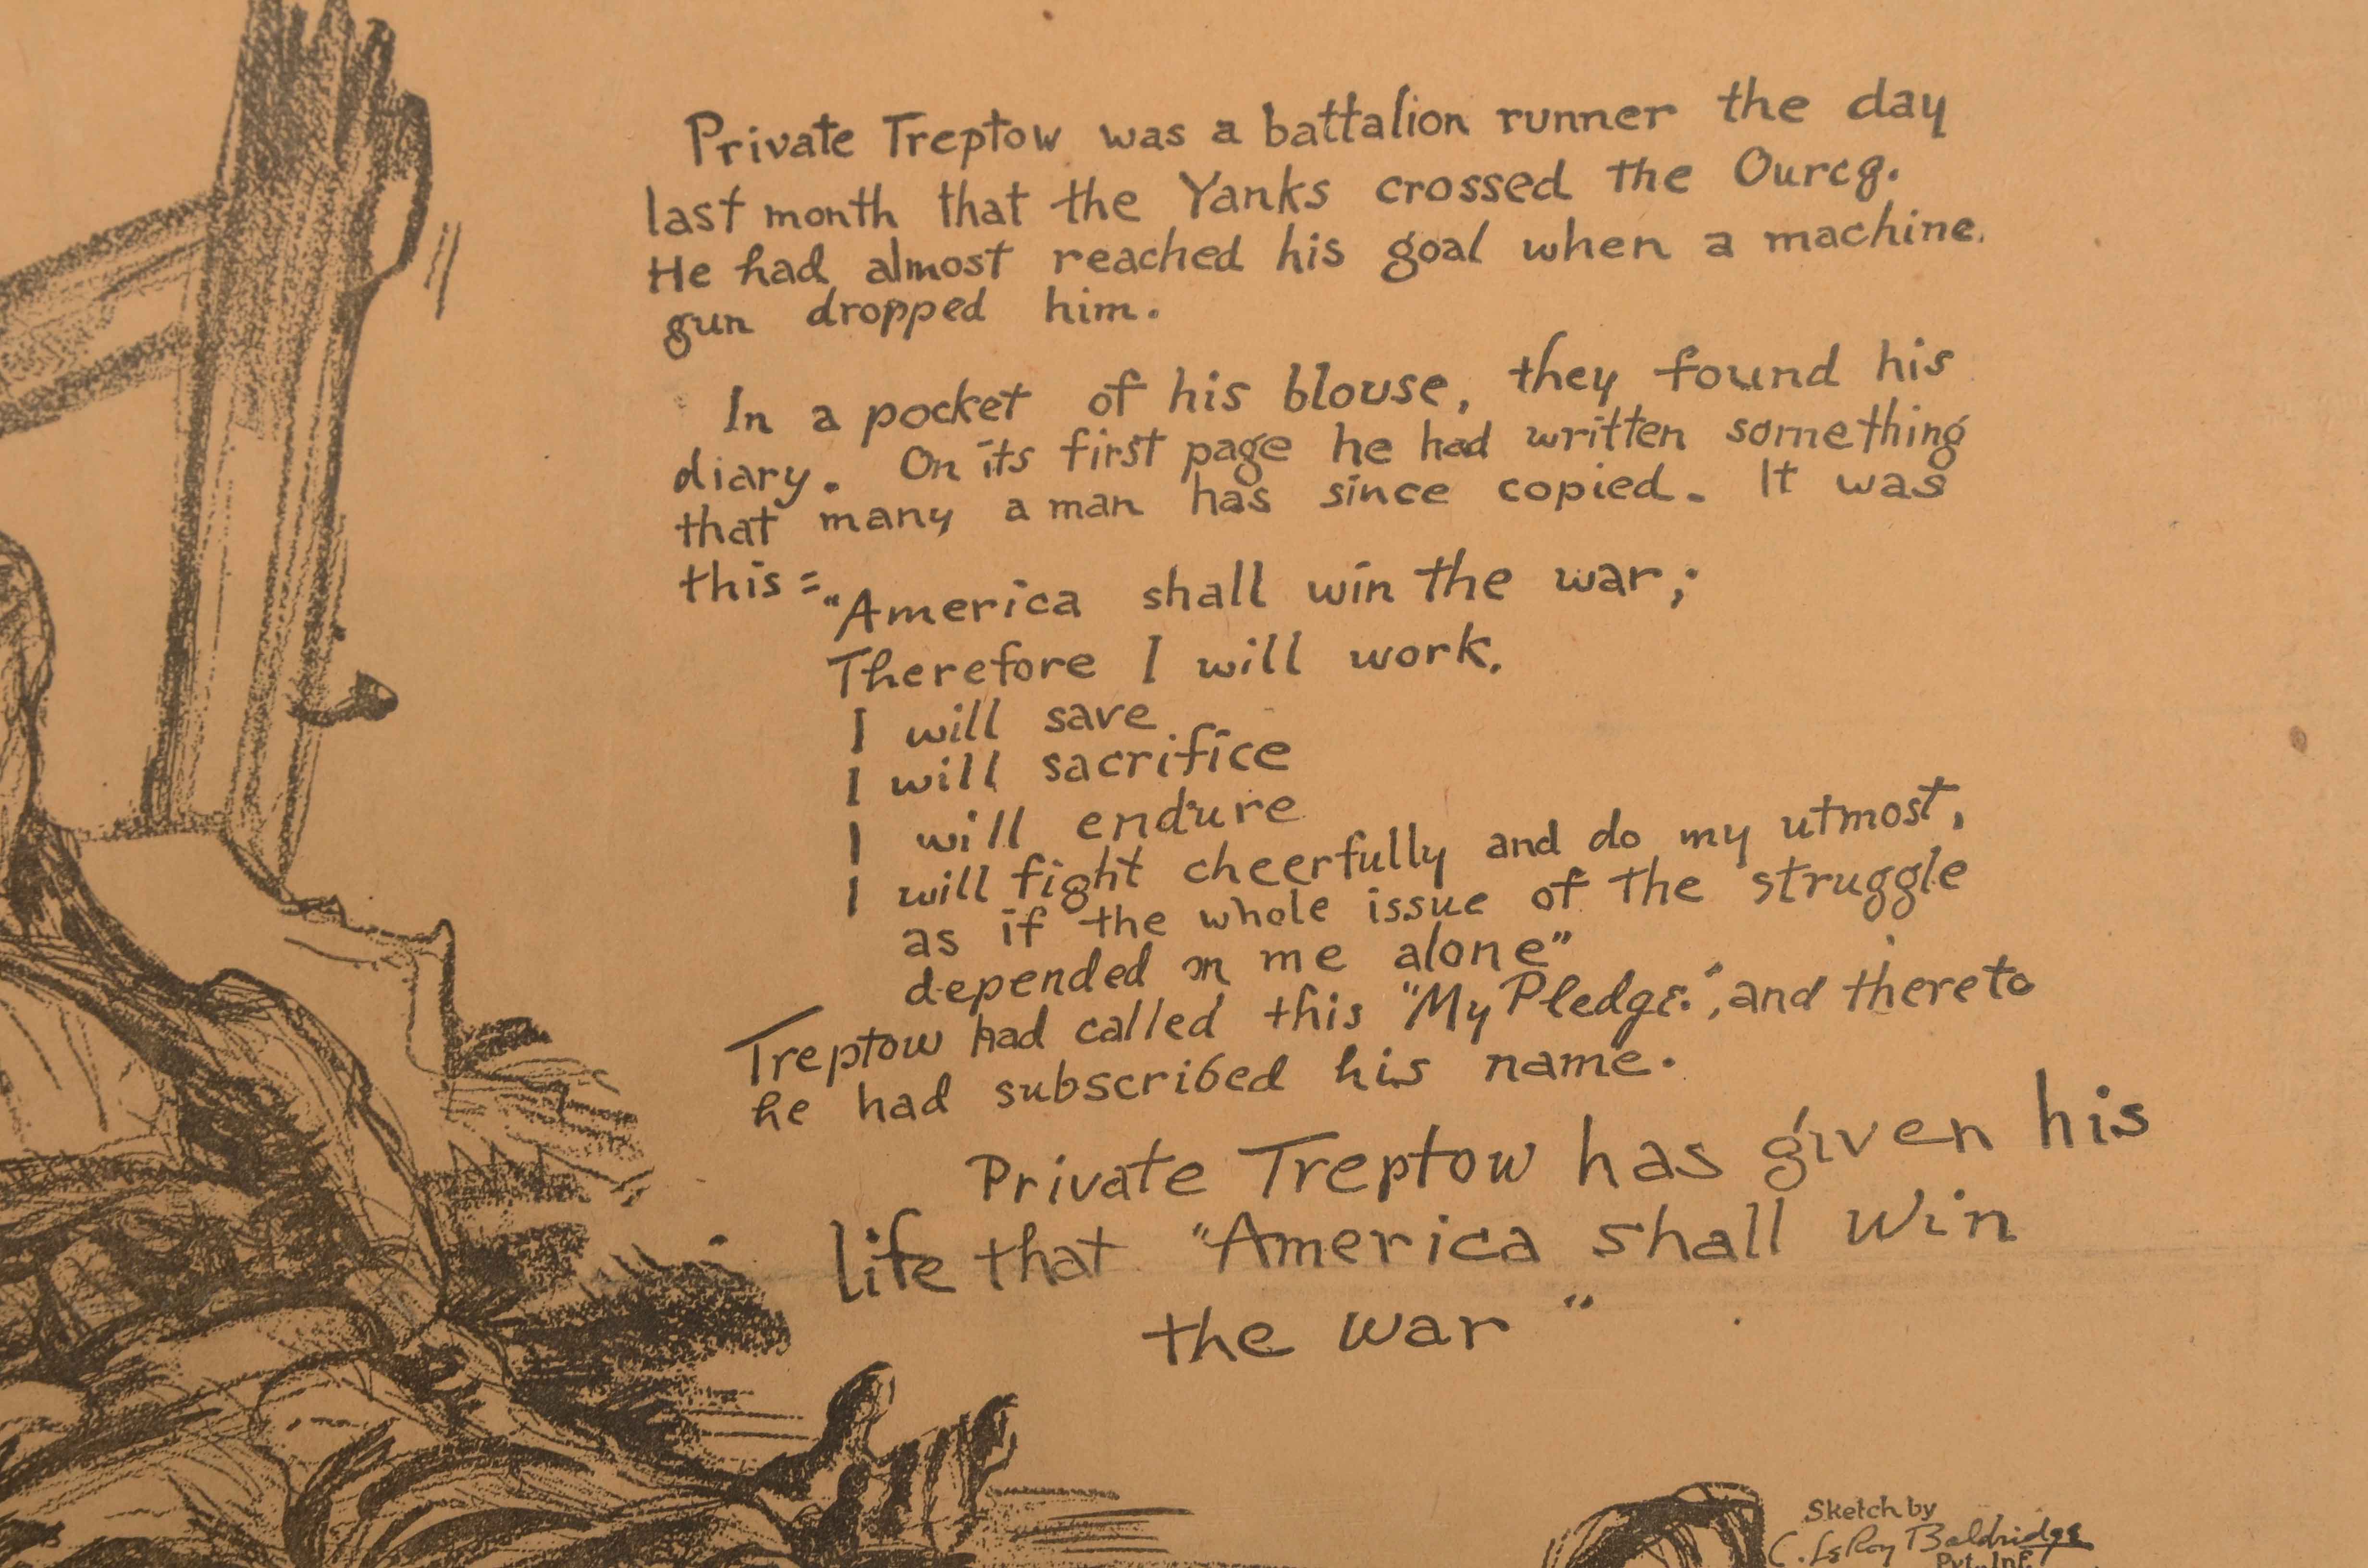 Private Treptow was a battalion runner the day
last month that the Yanks crossed the Ourcq.
He had almost reached his goal when a machine.
gun dropped him.
In a pocket of his blouse, they found his
diary. On its first page he had written something
that many a man has since copied. It was
this =
"America shall win the war;
Therefore I will work.
I will save
I will sacrifice
I will endure
I will fight cheerfully and do my utmost,
as if the whole issue of the struggle
depended on me alone"
Treptow had called this "My Pledge.", and thereto
he had subscribed his name.
Private Treptow has given his
life that "America shall win
the war"
Sketch by
C. LeRoy Baldridge
Pvt. Inf.